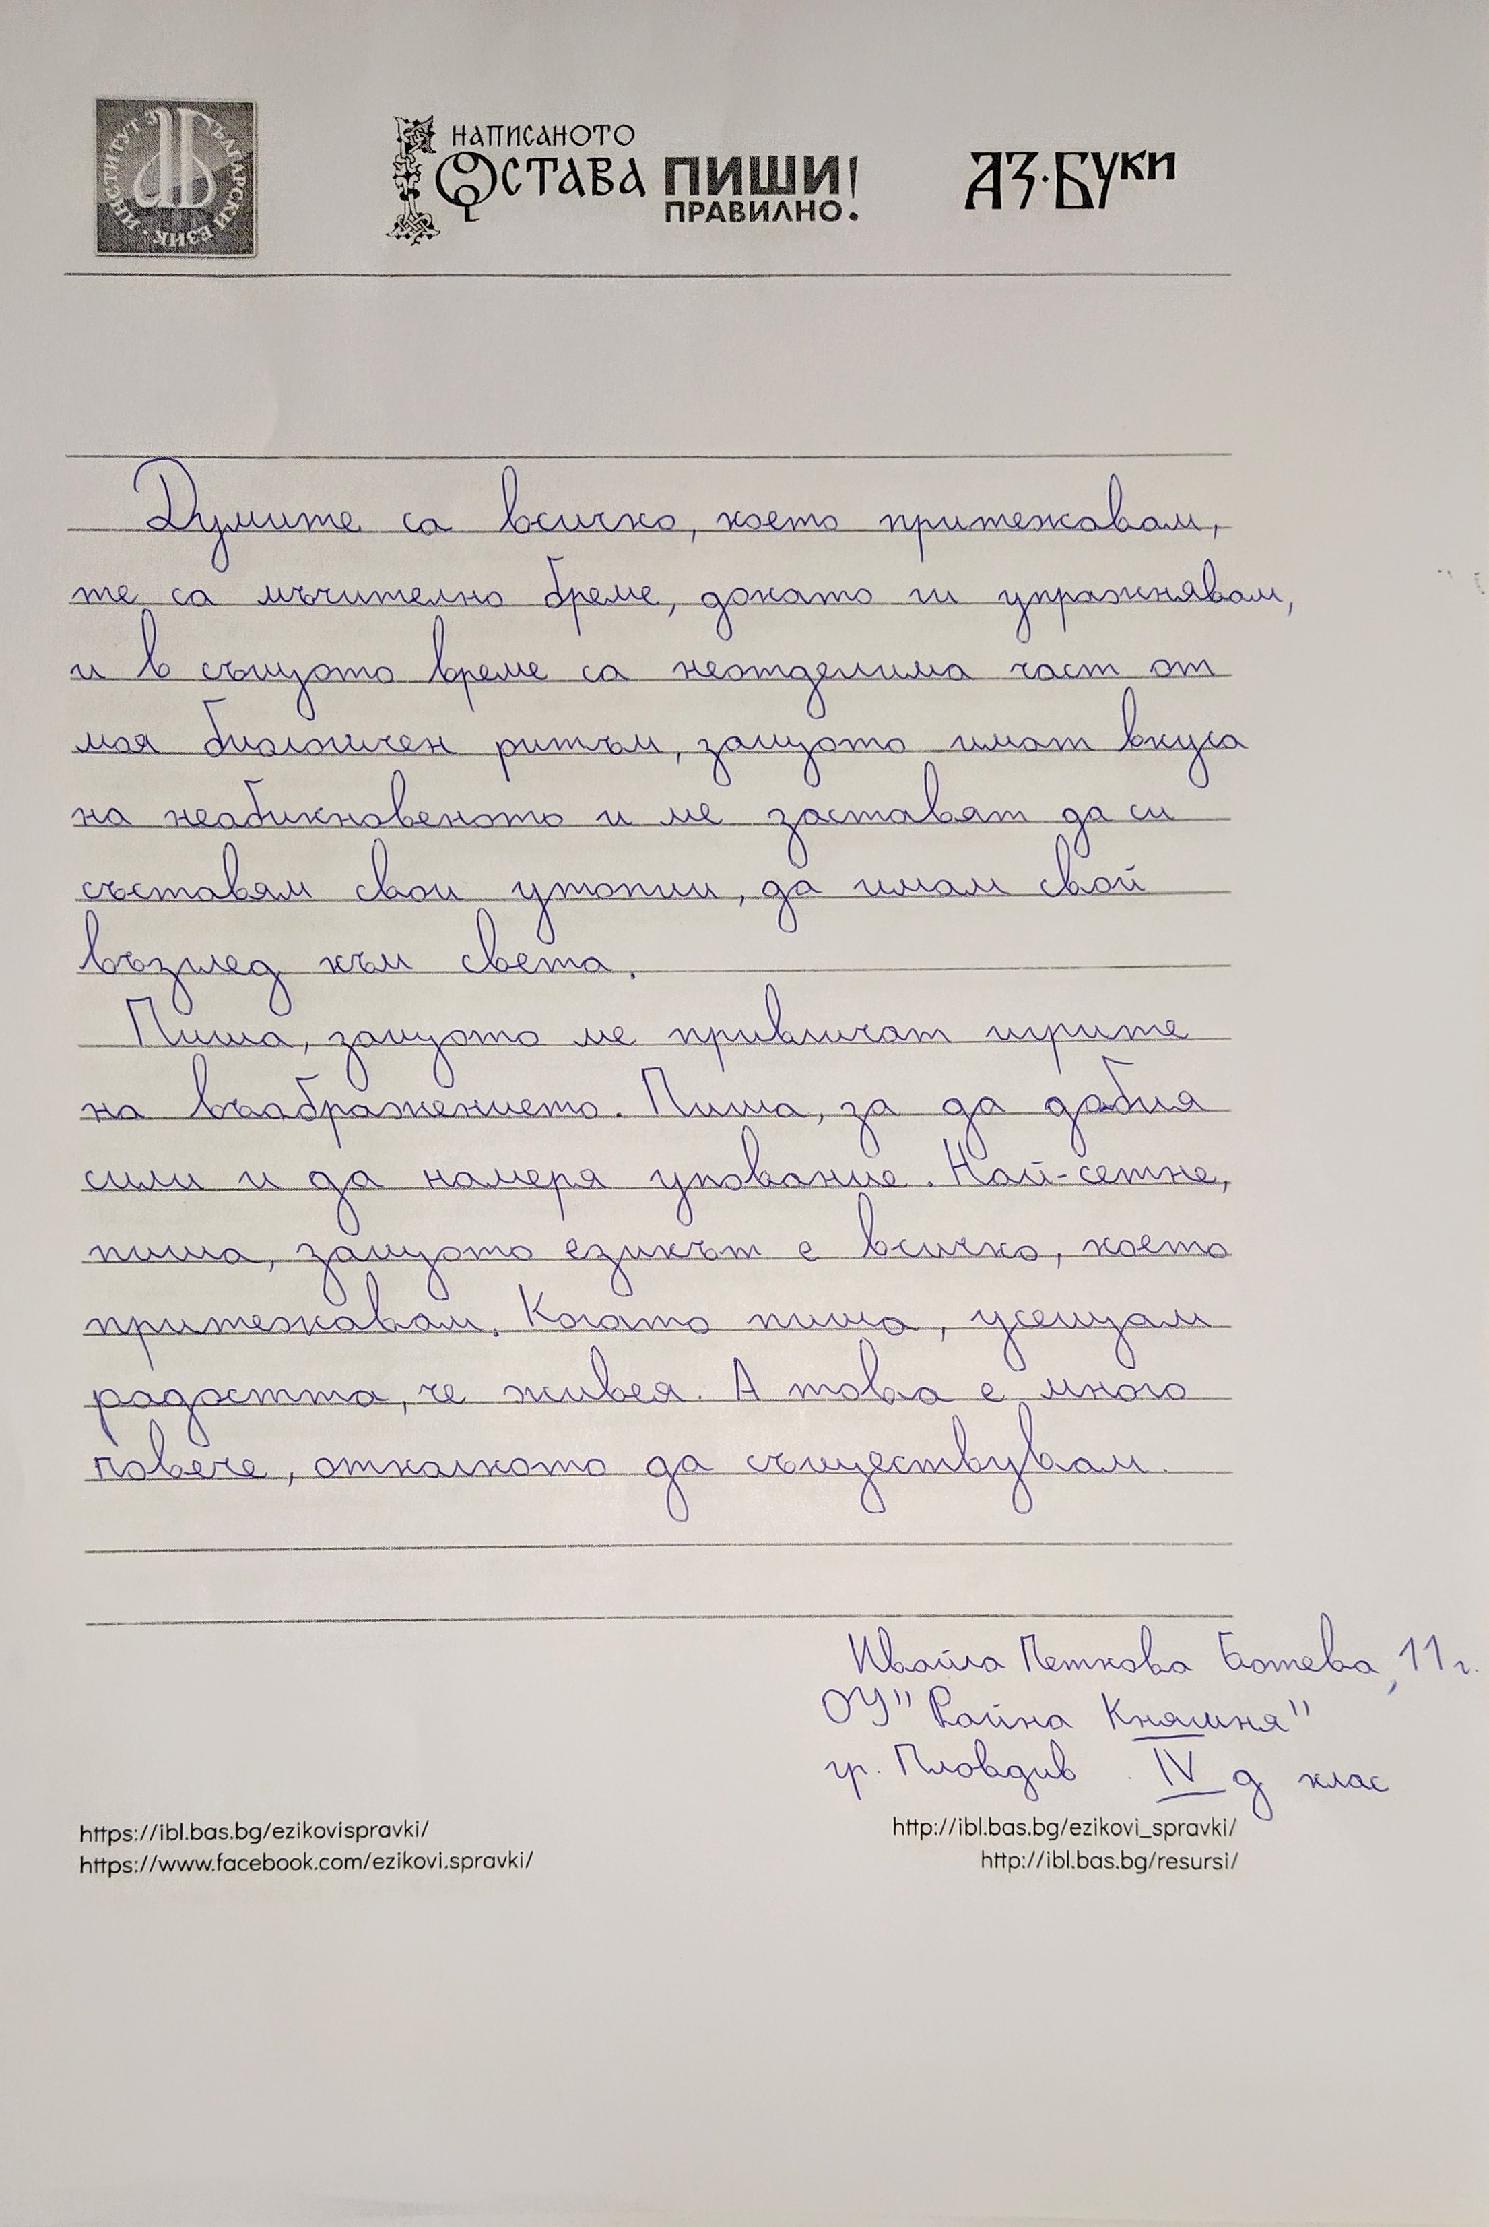 ИНСТИТУТ ЗА БЪЛГАРСКИ ЕЗИК
НАПИСАНОТО
ОСТАВА
ПИШИ
ПРАВИЛНО!
АЗ·БУКИ
Думите са всичко, което притежавам,
те са мъчително бреме, докато ги упражнявам,
и в същото време са неотделима част от
моя биологичен ритъм, защото имат вкуса
на необикновеното и ме заставят да си
съставям свои утопии, да имам свой
възглед към света.
Пиша, защото ме привличат игрите
на въображението. Пиша, за да добия
сили и да намеря упование. Най-сетне,
пиша, защото езикът е всичко, което
притежавам. Когато пиша, усещам
радостта, че живея. А това е много
повече, отколкото да съществувам.
Ивайла Петкова Ботева, 11 г.
ОУ "Райна Княгиня"
гр. Пловдив IV д клас
https://ibl.bas.bg/ezikovispravki/
https://www.facebook.com/ezikovi.spravki/
http://ibl.bas.bg/ezikovi_spravki/
http://ibl.bas.bg/resursi/